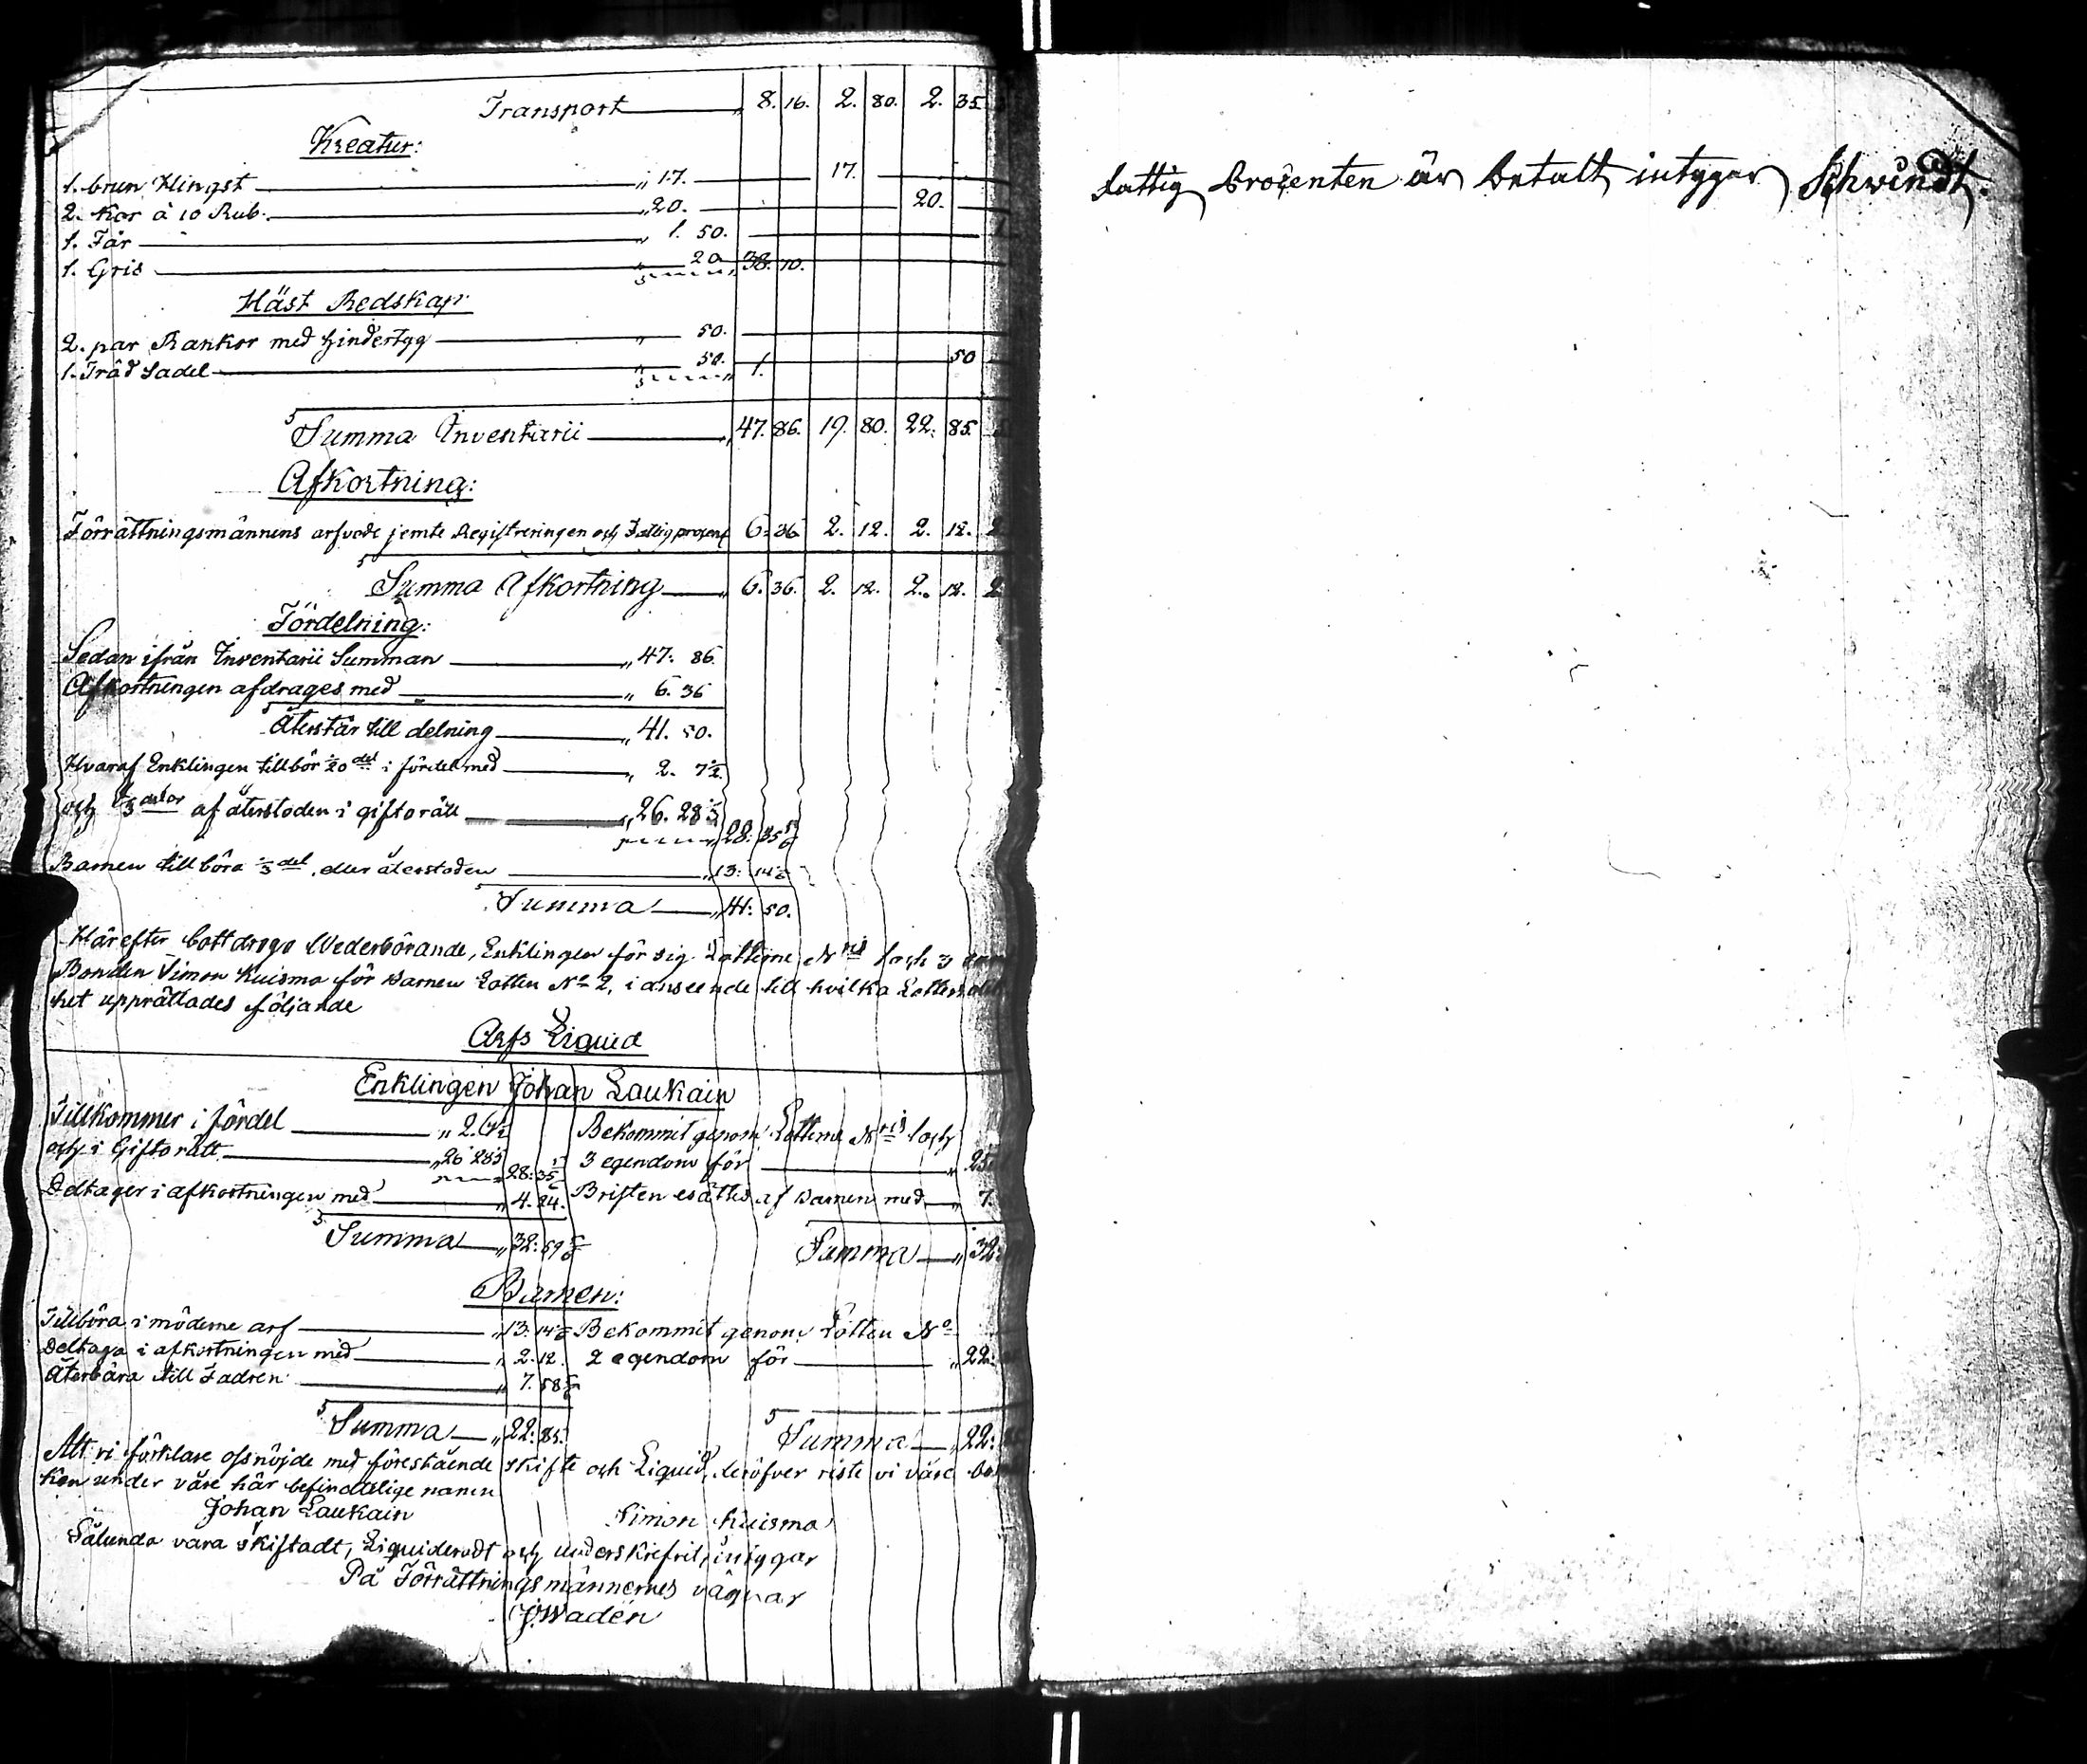 Transport " 8. 16. 2. 80. 2. 35.
Kreatur:
1. brun Hingst " 17. 17.
2. Kor à 10 Rub. " 20. 20.
1. Får " 1. 50.
1. Gris " 20 38. 70.
Häst Redskap
2. par Rankor med hindertyg " 50.
1. Träd Sadel " 50. 1. 50
Summa Inventarii " 47. 86. 19. 80. 22. 85.
Afkortning:
Förrättningsmännens arfvode jemte Registreringen och Fattigprocent 6. 36 2. 12. 2. 12. 2
Summa Afkortning " 6. 36. 2. 12. 2. 12. 2
Fördelning:
Sedan ifrån Inventarii Summan " 47. 86.
Afkortningen afdrages med " 6. 36
Återstår till delning " 41. 50.
Hvaraf Enklingen tillbör 1/20 del i fördel med " 2. 7½
och 2/3 delar af återstoden i giftorätt " 26. 28⅓
" 28. 35 5/6
Barnen tillböra 1/3 del eller återstoden " 13. 14 1/6
Summa " 41. 50.
Härefter lottdrogo Wederbörande, Enklingen för sig Lotterne N ris 1 och 3
Bonden Simon Kuisma för Barnen Lotten No 2, i anseende till hvilka
het upprättades följande
Arfs Liquid
Enklingen Johan Laukain
Tillkommer i fördel " 2. 7½ Bekommit genom Lotterne N ris 1 och
och i Giftorätt " 26 28⅓ 28. 35 5/6 3 egendom för " 25
Deltager i afkortningen med " 4. 24. Bristen ersättes af Barnen med " 7.
Summa " 32. 59 5/6 Summa " 32.
Barnen:
Tillböra i möderne arf " 13. 14 1/6 Bekommit genom Lotten No
Deltaga i afkortningen med " 2. 12. 2 egendom för " 22.
Återbära till Fadren " 7. 58 5/6
Summa " 22. 85. Summa " 22.
Att vi förklare oss nöjde med förestående skifte och Liquid, deröfver riste vi våre bo
ken under våre här befindtelige namn
Johan Laukain Simon Kuisma
Sålunda vara skiftadt, Liquideradt och underskrefvit, intygar
På Förrättningsmännernes vägnar
J. Wadén
fattig Procenten är betalt intygar Schwindt.